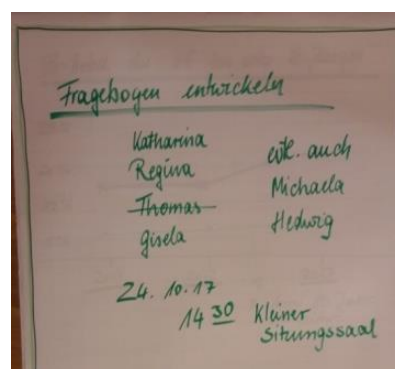 Fragebogen entwickeln
Katharina
Regina
Thomas
Gisela
evtl. auch
Michaela
Hedwig
24. 10. 17
14 30 Kleiner
Sitzungssaal